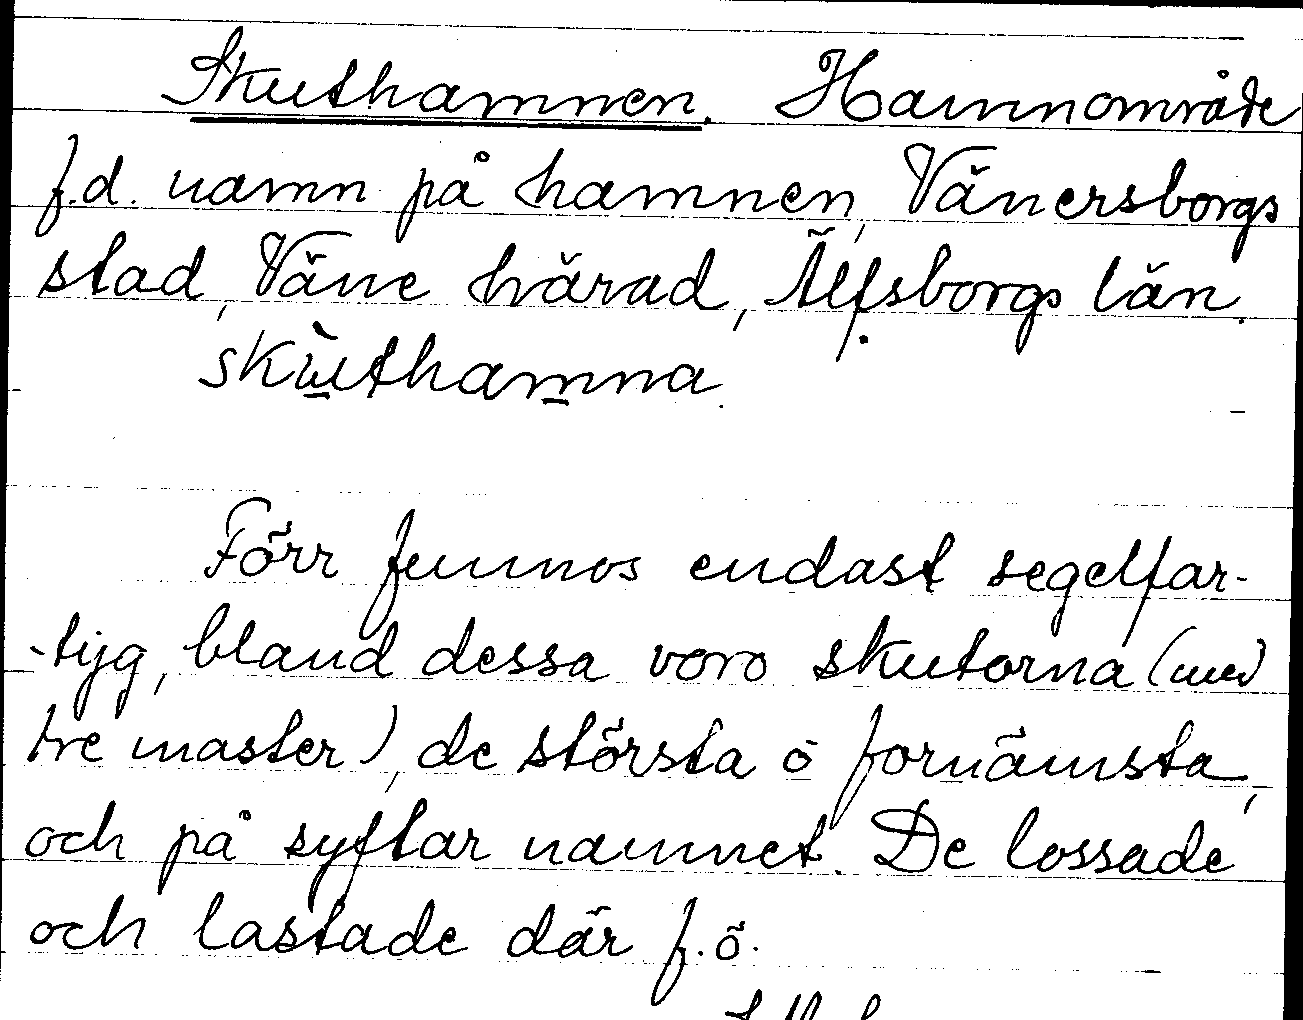 Skuthamnen. Hamnområde
f.d. namn på hamnen, Vänersborgs
stad, Väne härad, Älfsborgs län.
skùthamna.
Förr funnos endast segelfar-
-tyg, bland dessa voro skutorna (med
tre master), de största o förnämsta,
och på syftar namnet. De lossade
och lastade där f.ö.